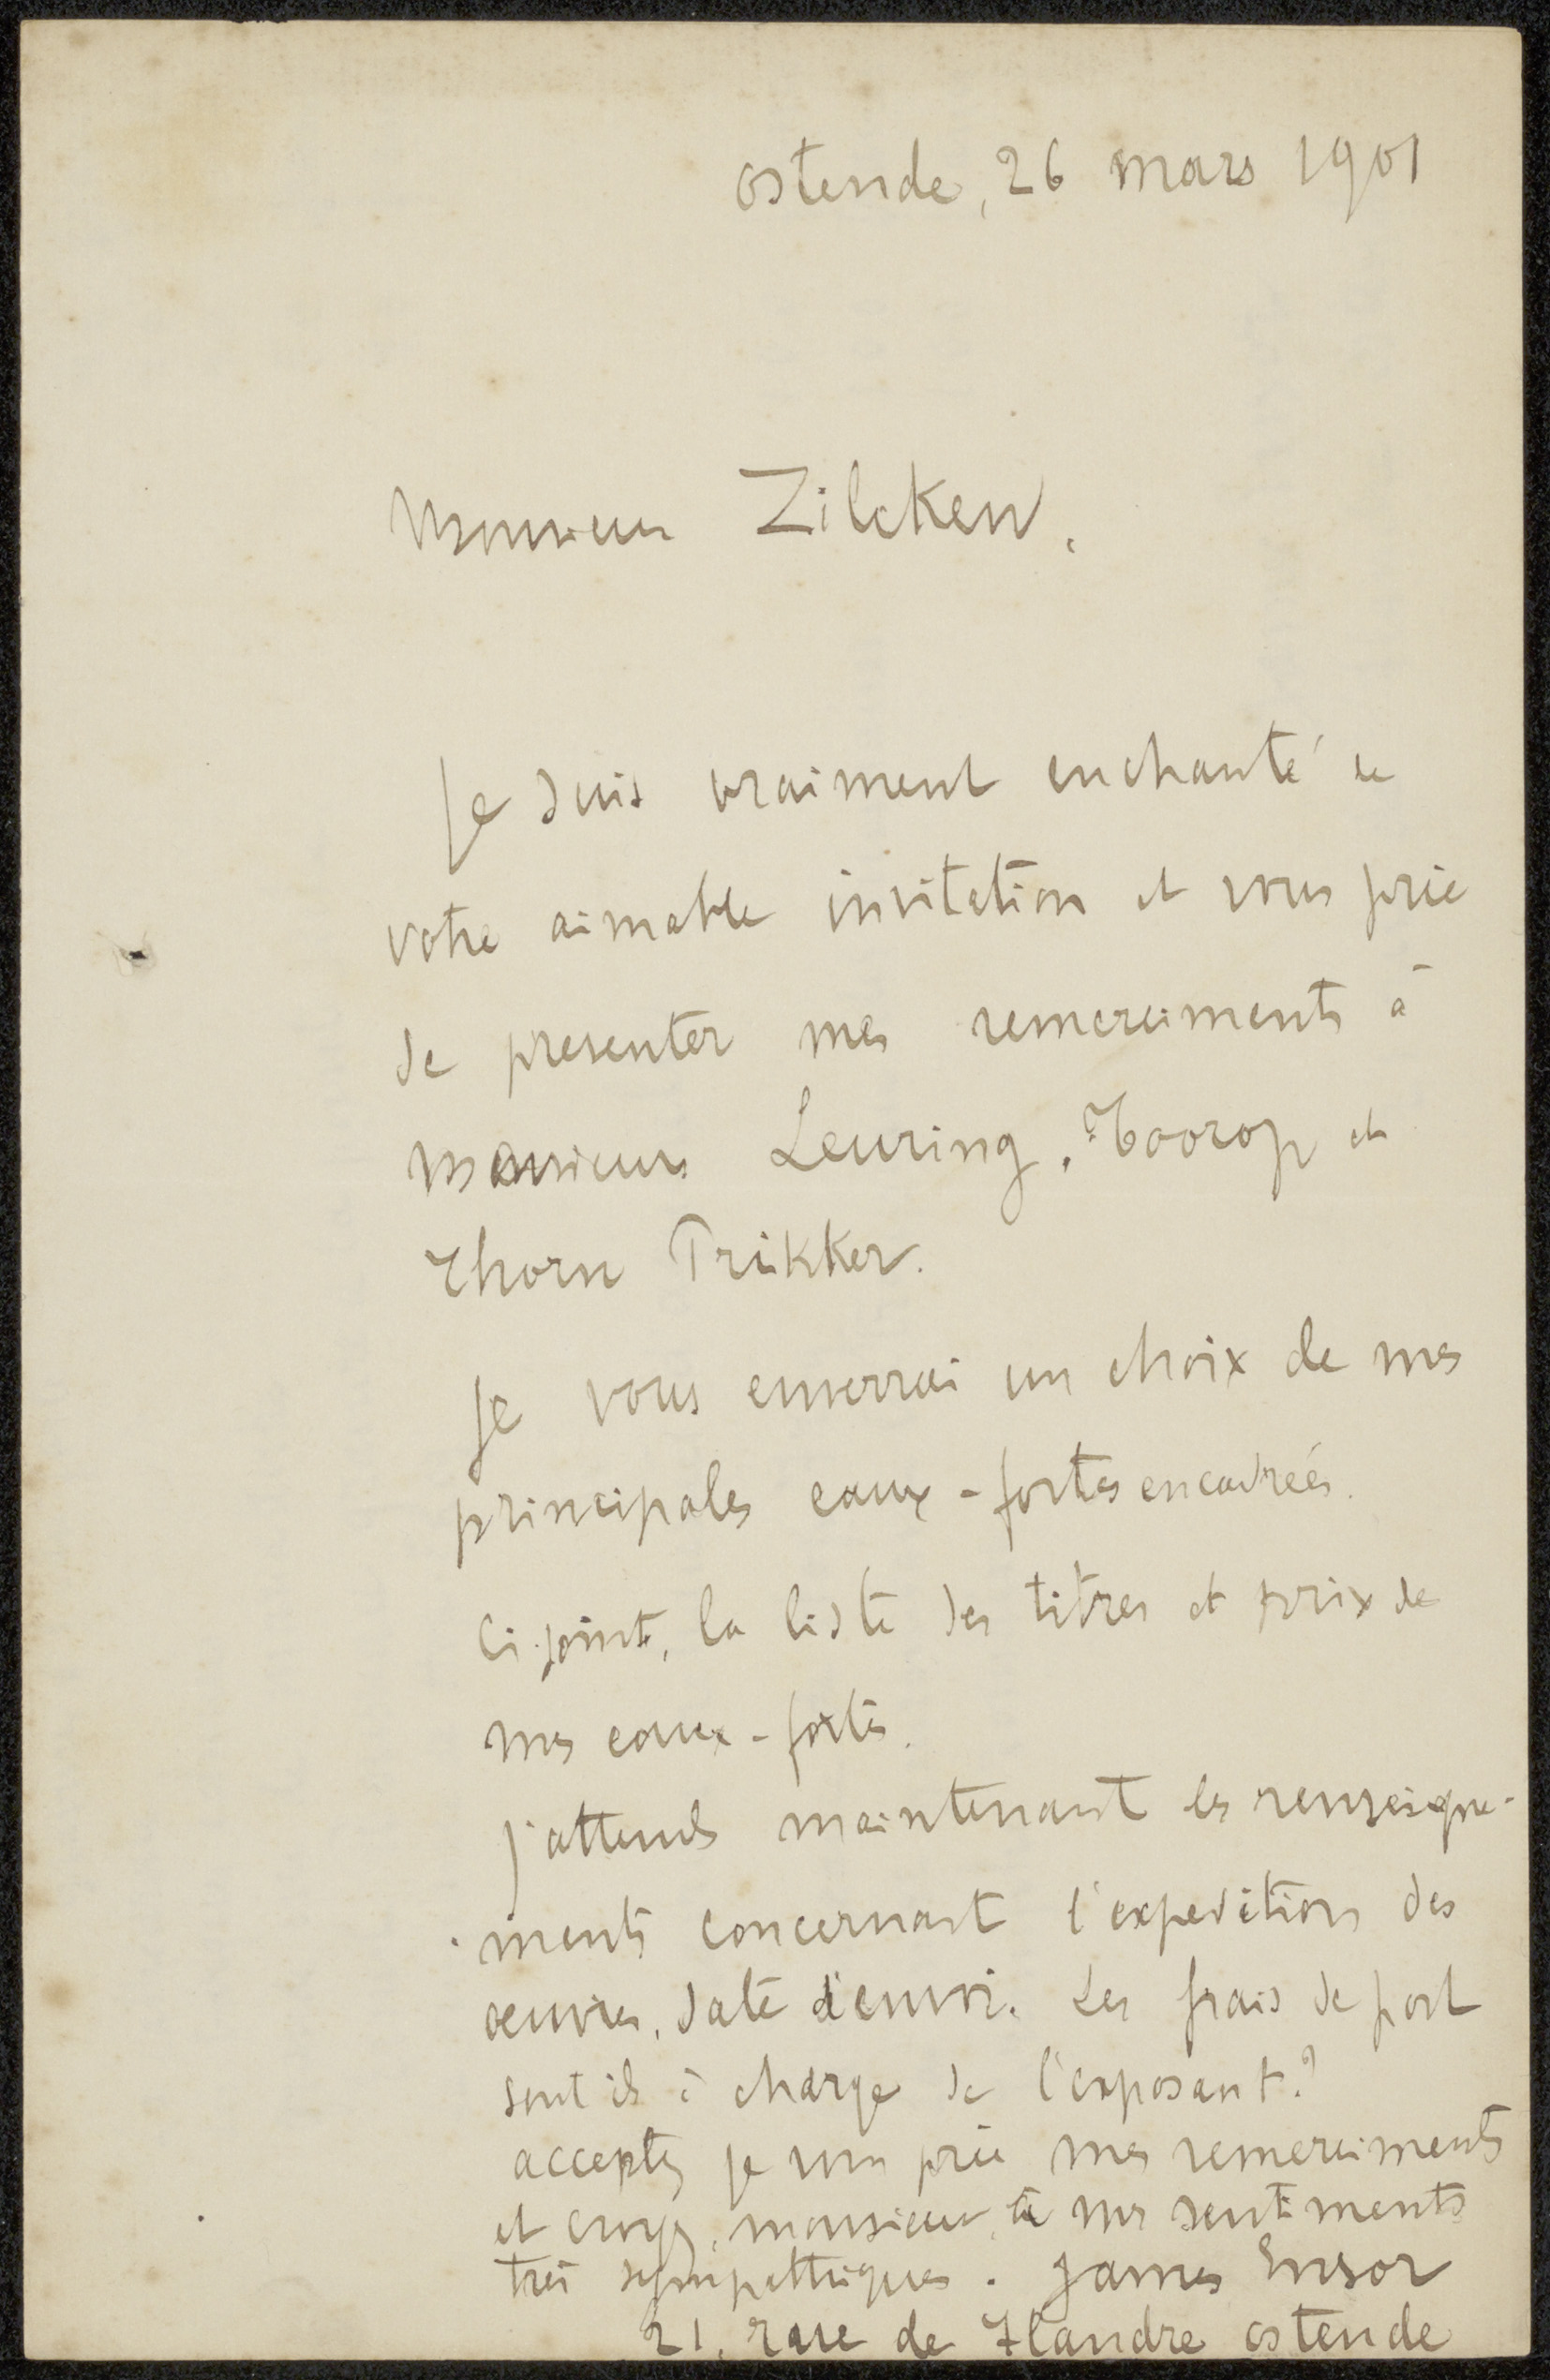 Ostende, 26 mars 1901
Monsieur Zilcken,
Je suis vraiment enchanté de
votre aimable invitation et vous prie
de presenter mes remerciments à
monsieurs Leuring, Toorop et
Thorn Prikker.
Je vous enverrai un choix de mes
principales eaux-fortes encadreés.
Ci-joint, la liste des titres et prix de
mes eaux-fortes.
J'attends maintenant les renseigne-
ments concernant l'expedition des
oeuvres, date d'envoi. Les frais de port
sont ils à charge de l'exposant?
acceptez je vous prie mes remerciments
et croyez, monsieur, à mes sentiments
très sympathiques. James Ensor
21, rue de Flandre Ostende